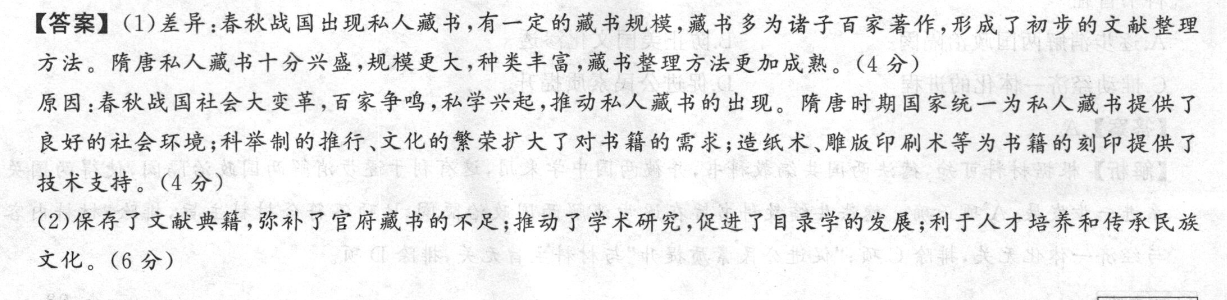 【答案】(1)差异:春秋战国出现私人藏书,有一定的藏书规模,藏书多为诸子百家著作,形成了初步的文献整理
方法。隋唐私人藏书十分兴盛,规模更大,种类丰富,藏书整理方法更加成熟。(4分)
原因:春秋战国社会大变革,百家争鸣,私学兴起,推动私人藏书的出现。隋唐时期国家统一为私人藏书提供了
良好的社会环境;科举制的推行、文化的繁荣扩大了对书籍的需求;造纸术、雕版印刷术等为书籍的刻印提供了
技术支持。(4分)
(2)保存了文献典籍,弥补了官府藏书的不足;推动了学术研究,促进了目录学的发展;利于人才培养和传承民族
文化。(6分)